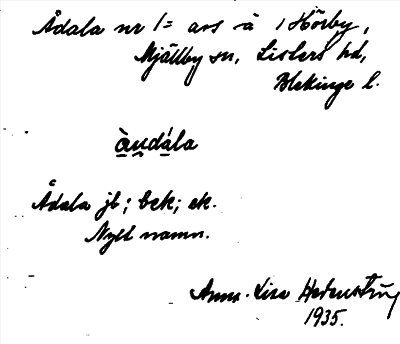 Ådala nr 1= avs å i Hörby,
Mjällby sn, Listers hd,
Blekinge l.
àu̯dála
Ådala jb; bek; ek.
Nytt namn.
Anna-Lisa
1935.